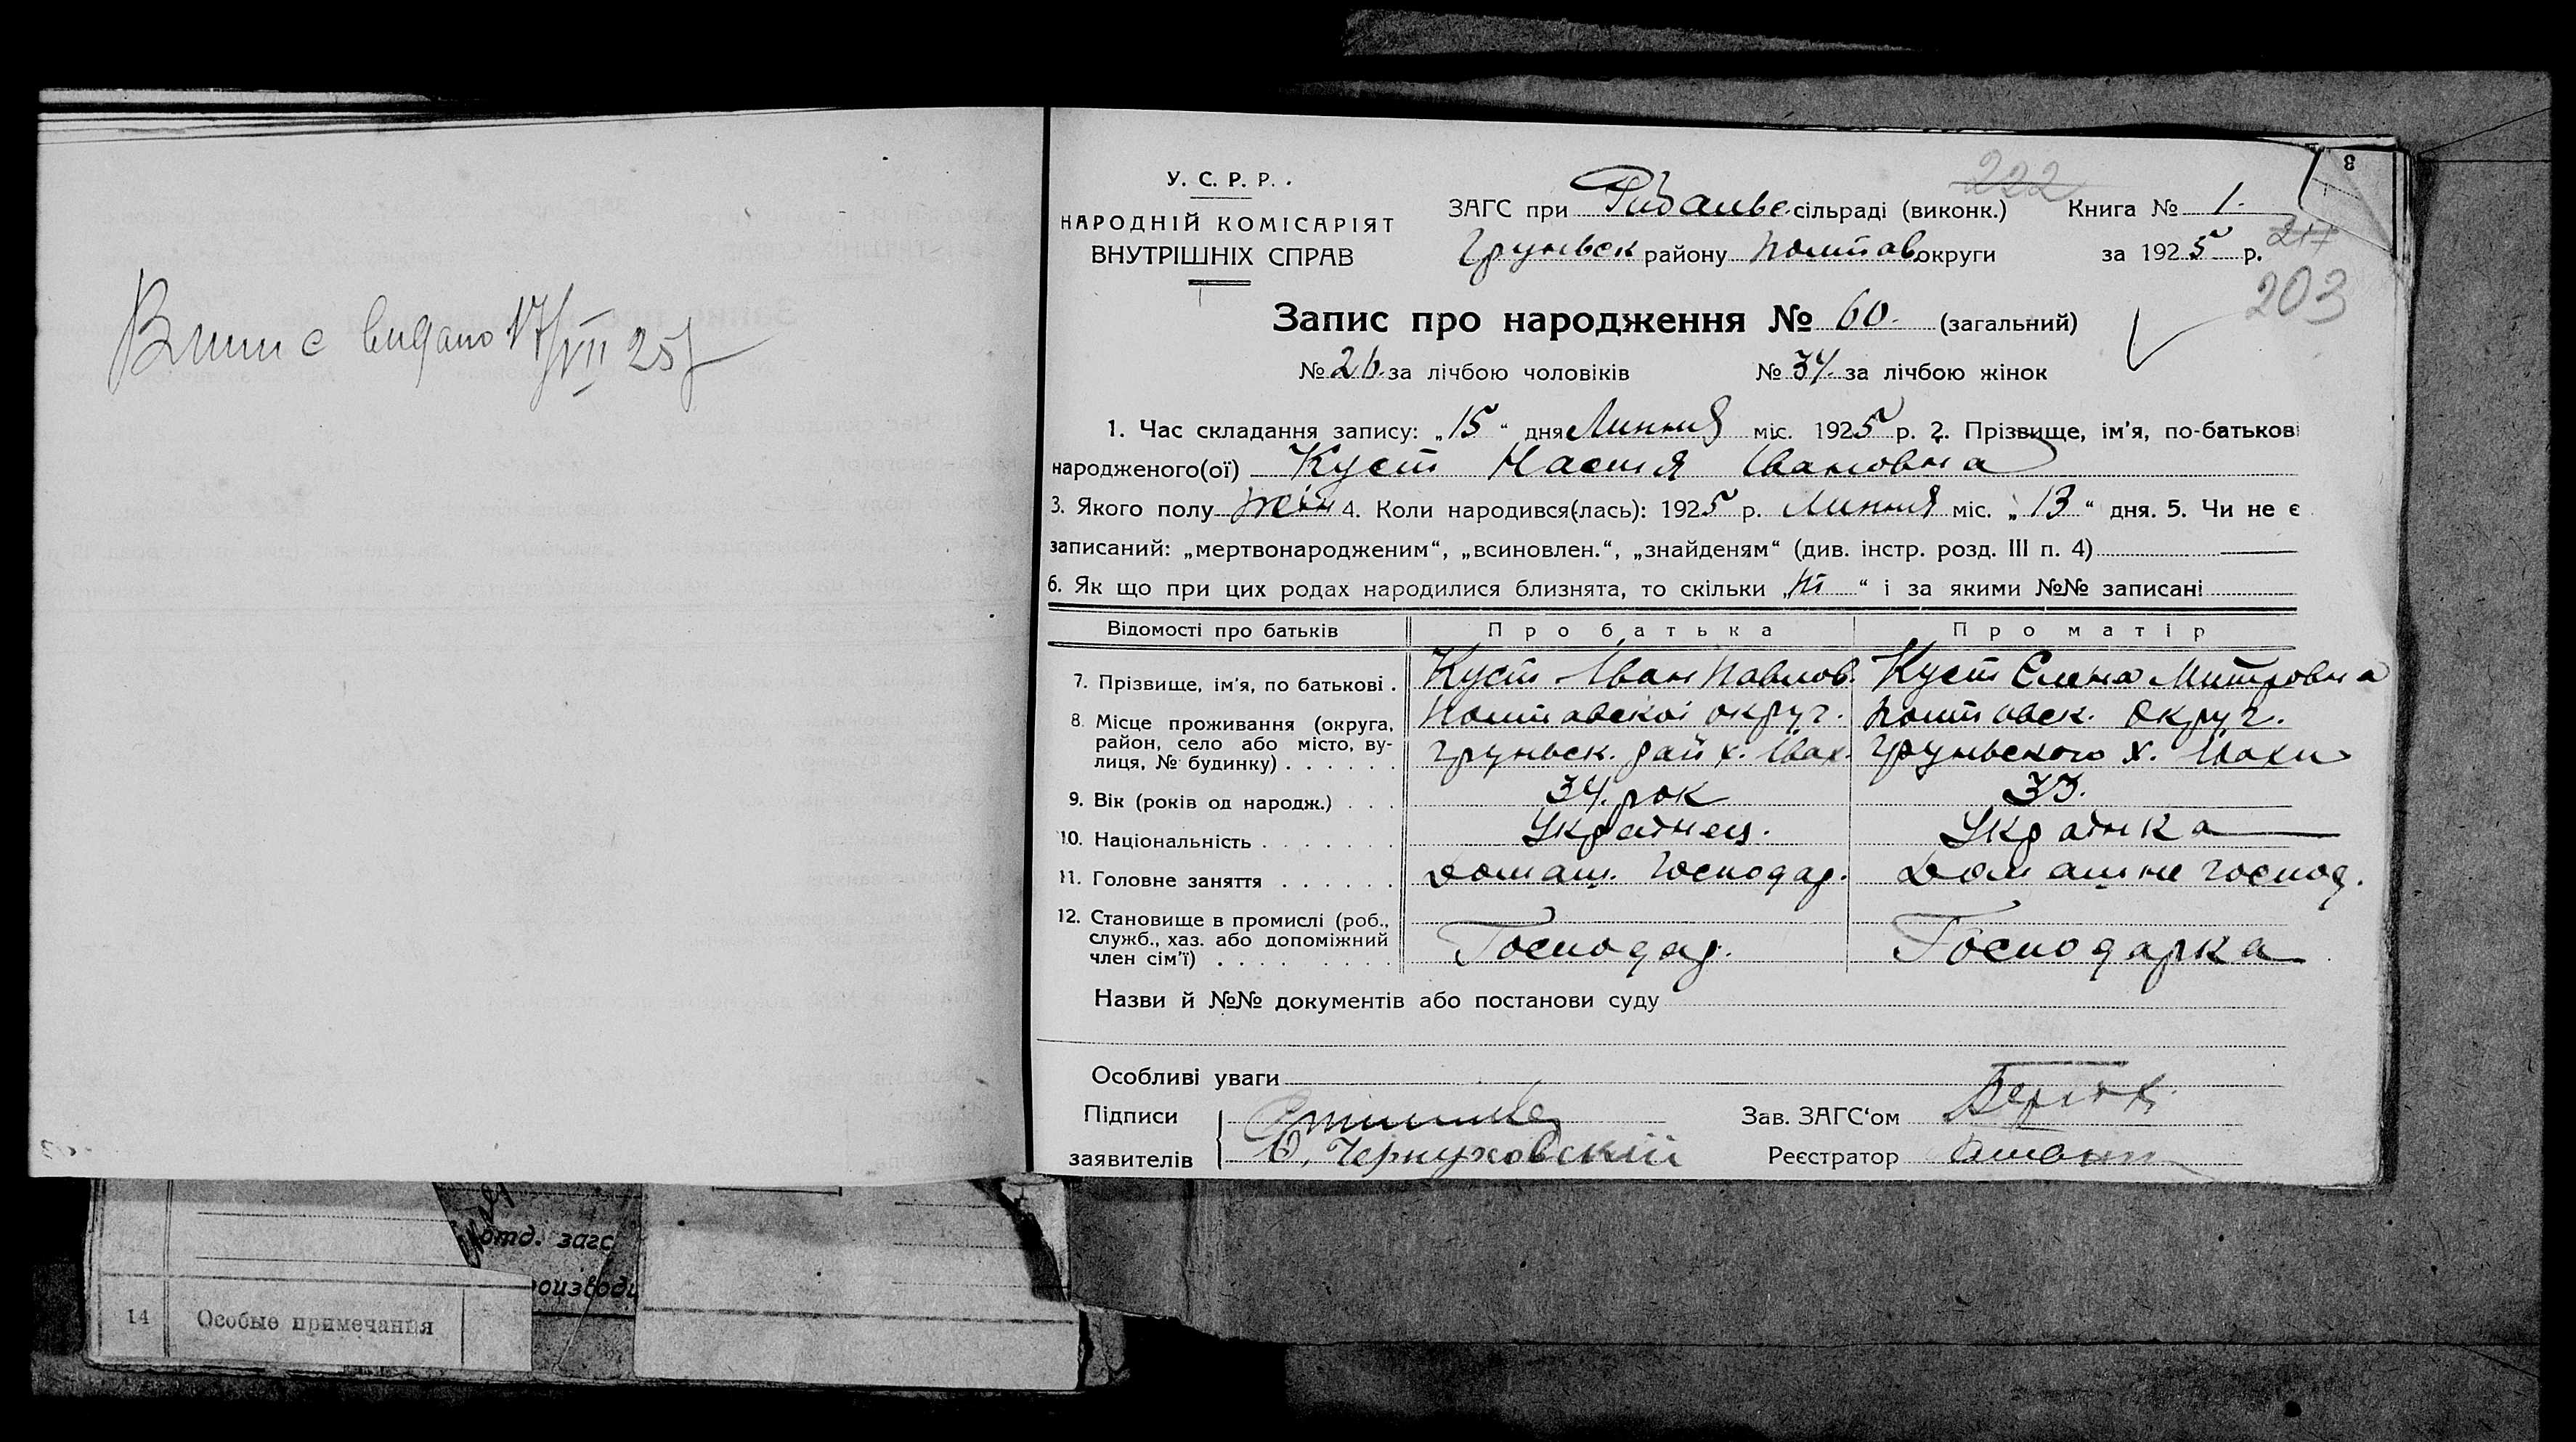 Выпис видано 17/VII 25 р
У. С. Р. Р.
НАРОДНІЙ КОМІСАРІЯТ
ВНУТРІШНІХ СПРАВ
222
ЗАГС при сільраді (виконк.) Книга № 1.
Груньск району Полтав округи за 1925 р.
203
Запис про народження № 60. (загальний)
№ 26. за лічбою чоловіків № 34. за лічбою жінок
1. Час складання запису: „15“ дня Липня міс. 1925 р. 2. Прізвище, ім'я, по-батькові
народженого(ої) Куст Настя Івановна
3. Якого полу жін 4. Коли народився(лась): 1925 р. Липня міс. „13“ дня. 5. Чи не є
записаний: „мертвонародженим“, „всиновлен.“, „знайденям“ (див. інстр. розд. III п. 4)
6. Як що при цих родах народилися близнята, то скільки „ні“ і за якими №№ записані
Відомості про батьків Про батька Про матір
7. Прізвище, ім'я, по батькові . Куст Іван Павлов. Куст Єлена Митровна
8. Місце проживання (округа, район, село або місто, вулиця, № будинку) . . . . . .
Полтавскої округ. Полтавск. округ.
Груньск. рай х. Груньского х.
9. Вік (років од народж.) . . . 34. рок 33.
10. Національність . . . . . . . Українец. Українка
11. Головне заняття . . . . . . Домаш. господар. Домашне господ.
12. Становище в промислі (роб.,
служб., хаз. або допоміжний
член сім'ї) . . . . . . . . . Господар. Господарка
Назви й №№ документів або постанови суду
Особливі уваги
Підписи Зав. ЗАГС'ом
заявителів Чернуховский Реєстратор
отд. загс
14 Особые примечания